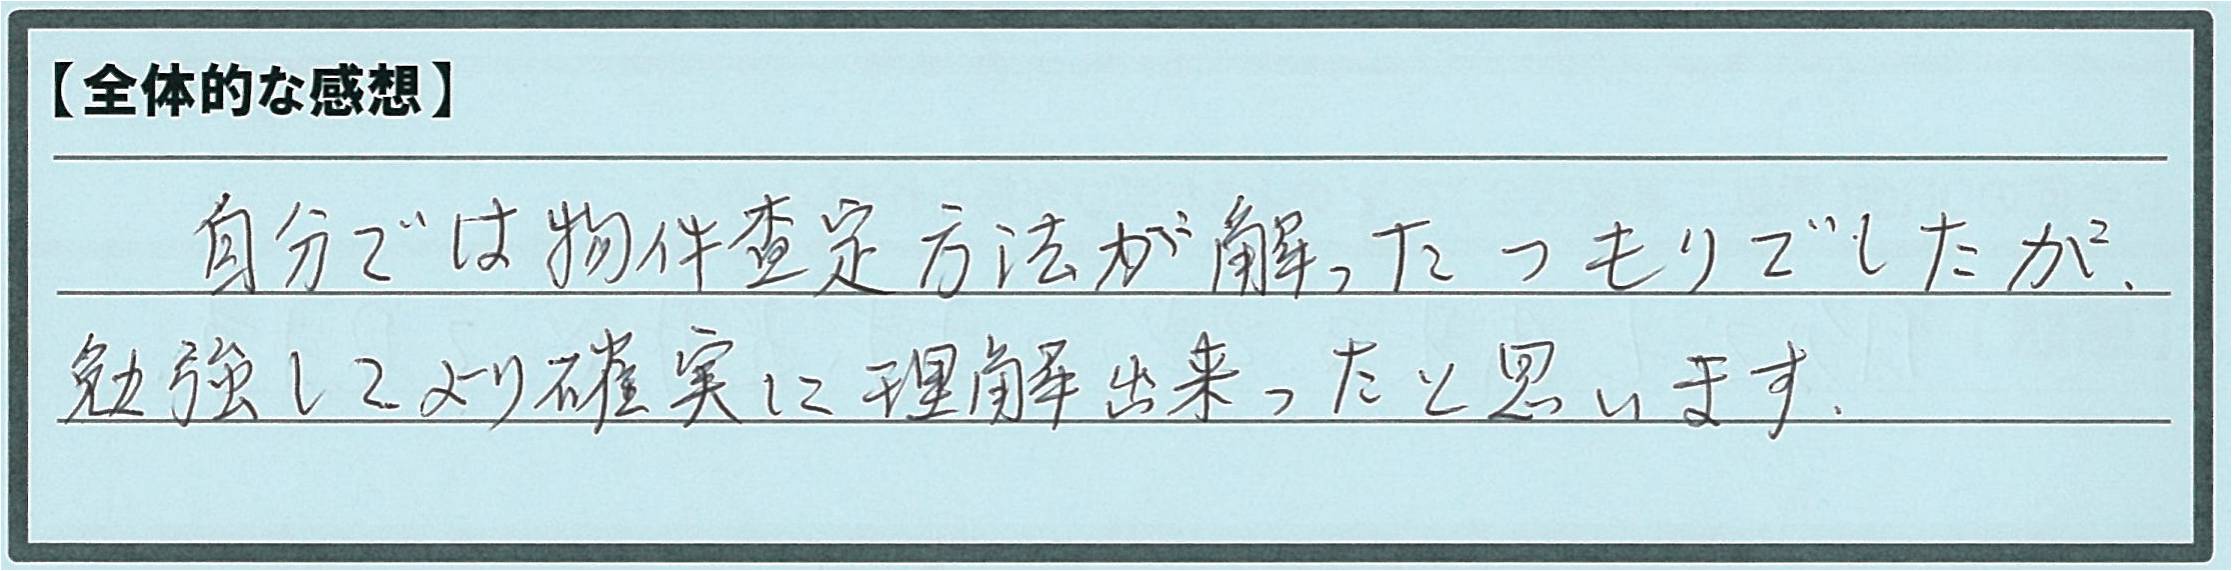 【全体的な感想】
自分では物件査定方法が解ったつもりでしたが、
勉強してより確実に理解出来ったと思います。